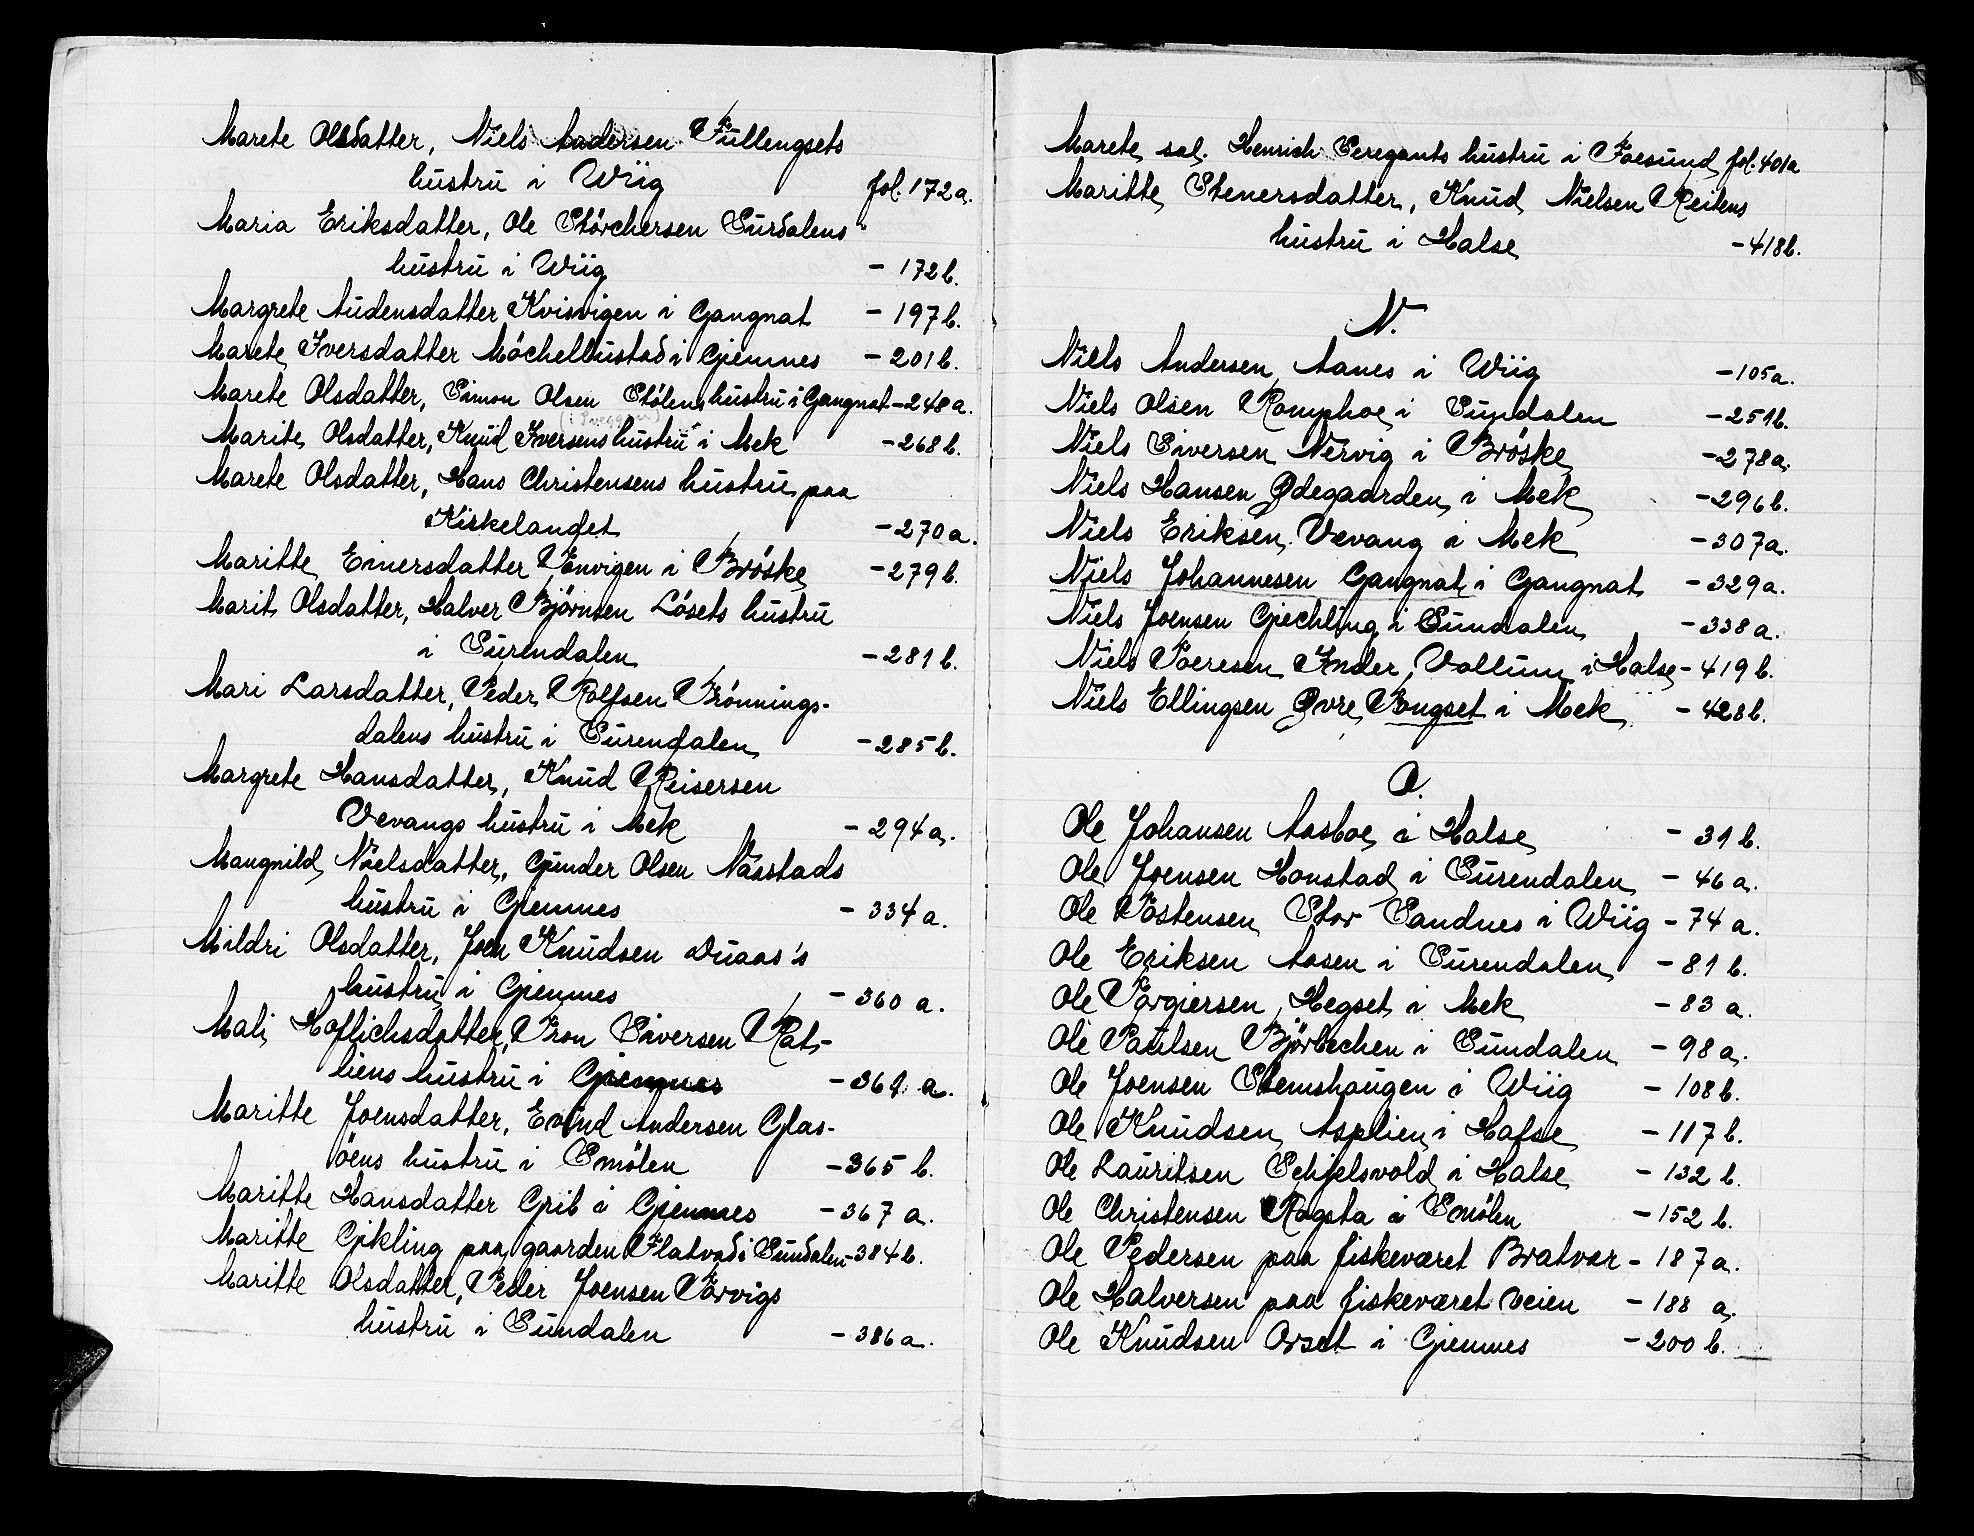 Marete Olsdatter, Niels Andersen Tullengsets
hustru i Wiig fol. 172a.
Maria Eriksdatter, Ole Størchersen Surdalens
hustru i Wiig - 172b.
Margrete Audensdatter Kvisvigen i Gangnat - 197b.
Marete Iversdatter Möchelbustad i Gjemnes - 201b.
Marete Olsdatter, Simon Olsen Stølens hustru i Gangnat - 248a.
Marite Olsdatter, Knud Iversens hustru i Mek - 268b.
Marete Olsdatter, Hans Christensens hustru paa
Kirkelandet - 270a.
Maritte Einersdatter Tonvigen i Brøske - 279b.
Marit Olsdatter, Halver Bjørnsen Løsets hustru
i Surendalen - 281b.
Mari Larsdatter, Peder Rolfsen Brønnings-
dalens hustru i Surendalen - 285b.
Margrete Hansdatter, Knud Reisersen
Vevangs hustru i Mek - 294a.
Mangnild Nielsdatter, Gunder Olsen Nåstads
hustru i Gjemnes - 334a.
Mildri Olsdatter, Joen Knudsen Duaas's
hustru i Gjemnes - 360a.
Mali Hoflichsdatter, Tron Siversen Rat-
liens hustru i Gjemnes - 361a.
Maritte Joensdatter, Evind Andersen Glas-
öens hustru i Smölen - 365b.
Maritte Hansdatter Grib i Gjemnes - 367a.
Maritte Gikling paa gaarden Flatvad i Sundalen - 384b.
Maritte Olsdatter, Peder Joensen Torvigs
hustru i Sundalen - 386a.
Marete sal. Henrich Peregants hustru i Foesund fol. 401a
Maritte Stenersdatter, Knud Nielsen Reitens
hustru i Halse - 418b.
N.
Niels Andersen Aanes i Wiig - 105a.
Niels Olsen Romphoe i Sundalen - 251b.
Niels Siversen Nervig i Brøske - 278a.
Niels Hansen Ødegaarden i Mek - 296b.
Niels Eriksen Vevang i Mek - 307a.
Niels Johannesen Gangnat i Gangnat - 329a.
Niels Joensen Gjechling i Sundalen - 338a.
Niels Poeresen Inder Vollum i Halse - 419b.
Niels Ellingsen Øvre Tongset i Mek - 428b.
O.
Ole Johansen Aasboe i Halse - 31b.
Ole Joensen Honstad i Surendalen - 46a.
Ole Tostensen Stor Sandnes i Wiig - 74a.
Ole Eriksen Aasen i Surendalen - 81b.
Ole Torgiersen Hegset i Mek - 83a.
Ole Paulsen Bjørbechen i Sundalen - 98a.
Ole Joensen Stemshaugen i Wiig - 108b.
Ole Knudsen Asplien i Halse - 117b.
Ole Lauritsen Schjelsvold i Halse - 132b.
Ole Christensen Rogsta i Smölen - 152b.
Ole Pedersen paa fiskeværet Bratvor - 187a.
Ole Halversen paa fiskeværet Veien - 188a.
Ole Knudsen Orset i Gjemnes - 200b.